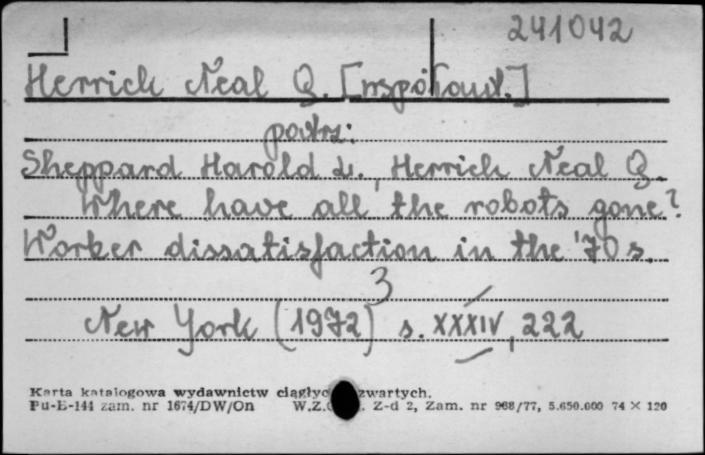 241042
Herrick Neal Q. [współaut.]
patrz:
Sheppard Harold L., Herrick Neal Q.
Where have all the robots gone?
Worker dissatisfaction in the '70 s.
3
New York (1972) s. XXXIV, 222
Karta katalogowa wydawnictw ciągłyc zwartych.
Pu-E-144 zam. nr 1674/DW/On W.Z. Z-d 2, Zam. nr 968/77, 5.650.000 74 × 120